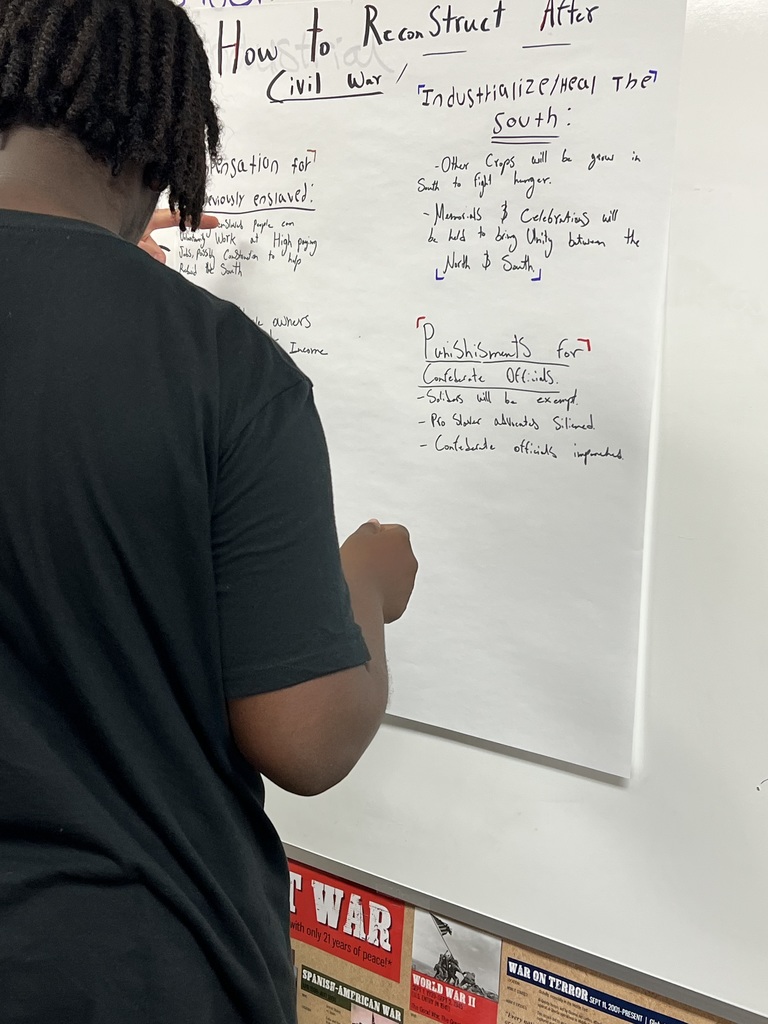 How to Reconstruct After
Civil War
Industrialize/Heal The
South:
-Other Crops will be grow in
South to fight hunger.
-Memorials & Celebrations will
be held to bring Unity between the
North & South
ensation for
eviously enslaved:
enslaved people can
Work at High paying
Jobs, possibly Construction to help
Rebuild the South
owners
Income
Punishisments for
Confederate Officials.
-Solibers will be exempt.
-Pro Slaver advocates Silienced.
-Confederate officials impeached.
T WAR
with only 21 years of peace!*
SPANISH-AMERICAN WAR
WORLD WAR II
WAR ON TERROR SEPT 11, 2001-PRESENT